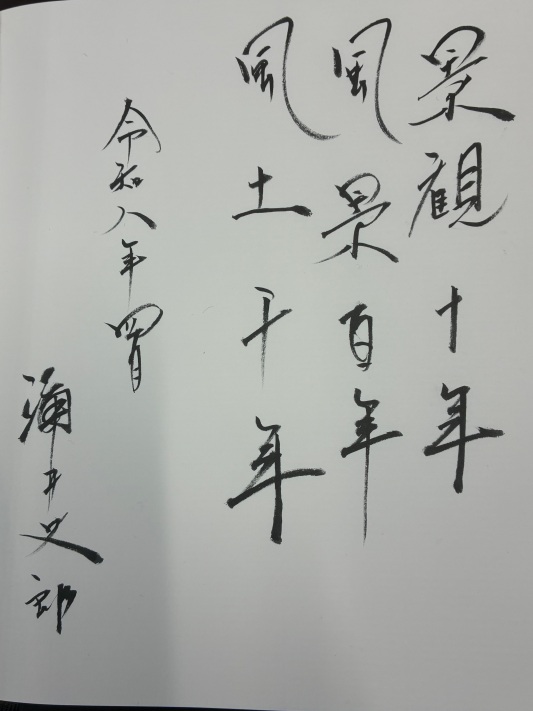 景観十年
風景百年
風土千年
令和八年四月
涌井史郎